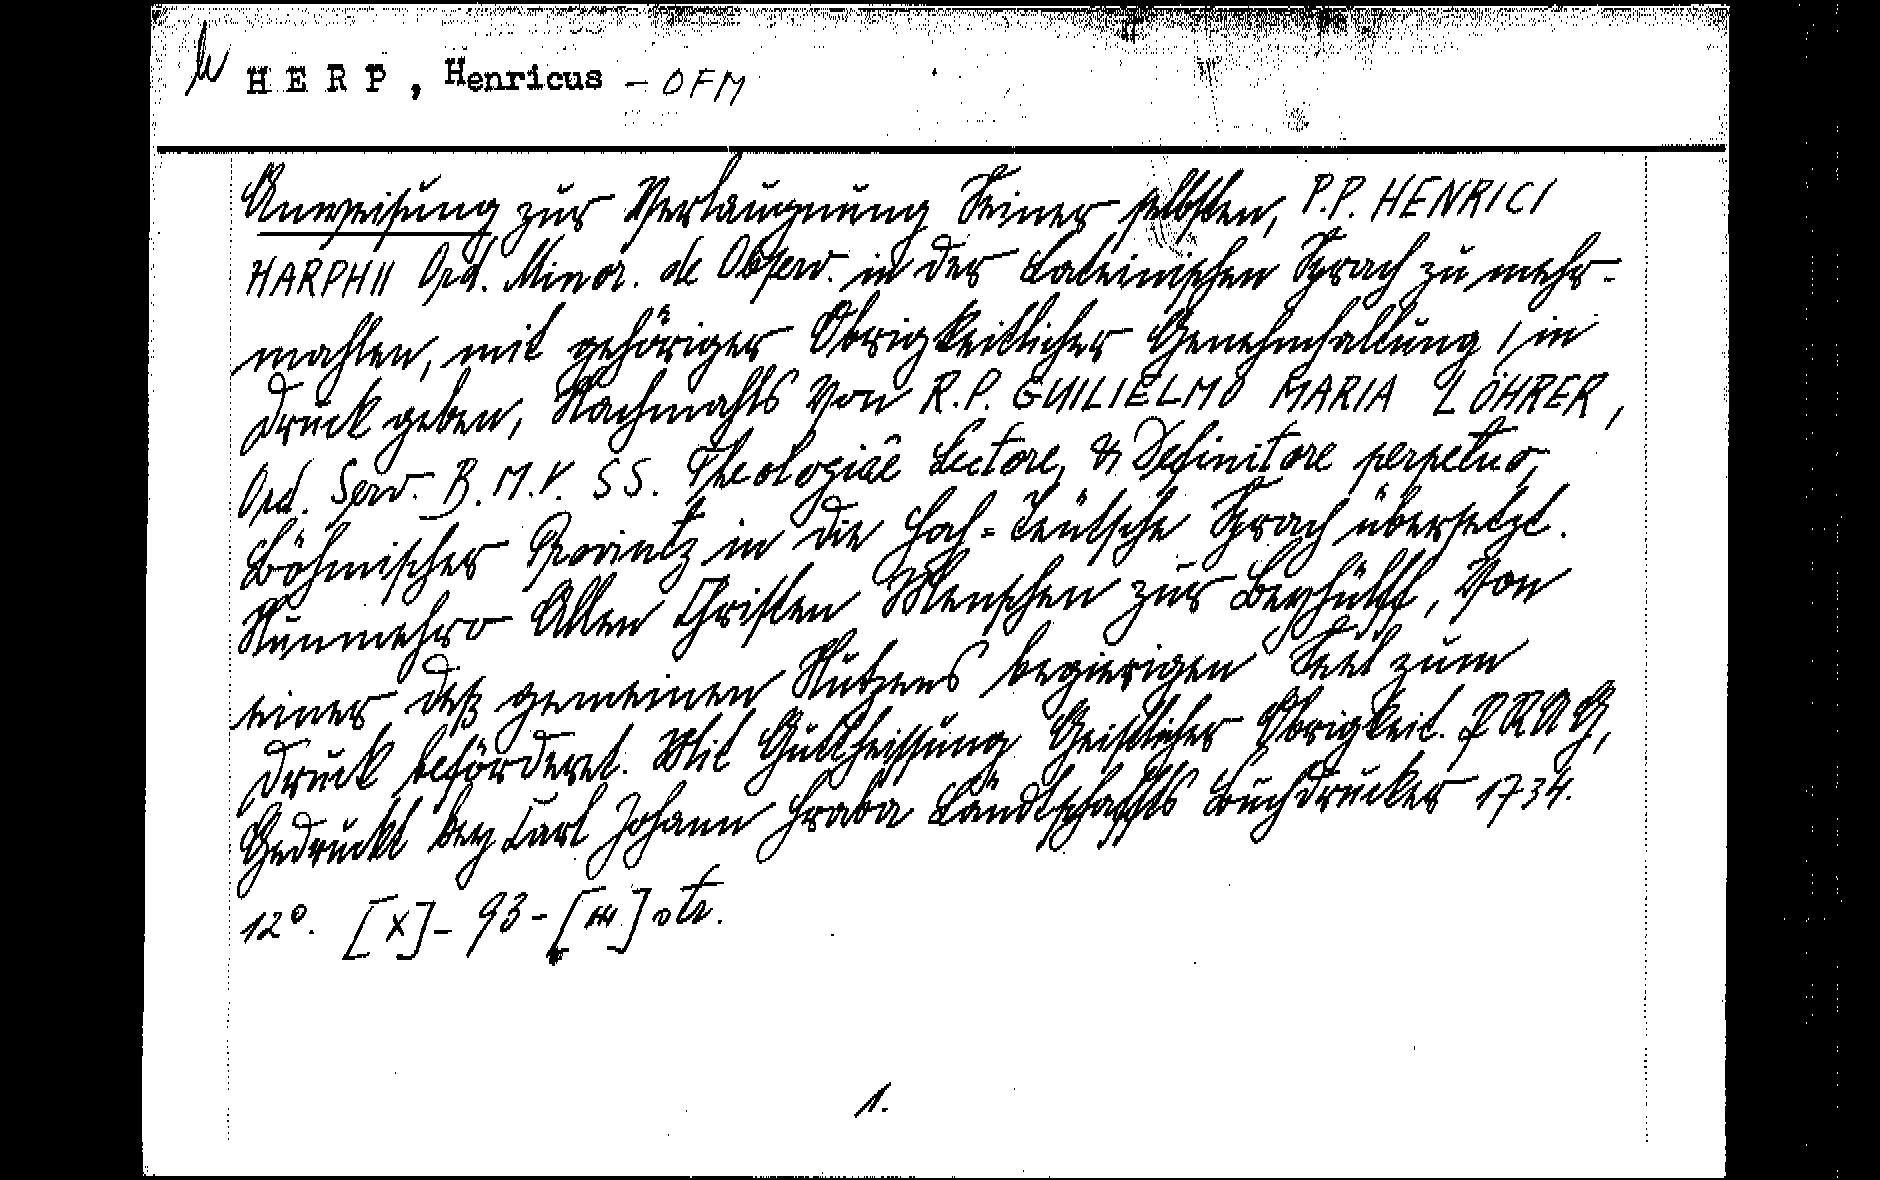 H E R P , Henricus – OFM
Anweisung zur Verlaugnung Seiner selbsten, P.P. HENRICI
HARPHII Ord. Minor. de Observ. in der Lateinischen Sprach zu mehr-
mahlen, mit gehöriger Obrigkeitlicher Genehmhaltung, in
Druck geben, Nachmahls Von R.P. GUILIELMO MARIA LÖHRER,
Ord. Serv. B.M.V. SS. Theologiae Lectore, & Definitore perpetuo,
Böhmischer Provintz in die Hoch=Teütsche Sprach übersetzt.
Nunmehro Allen Christen Menschen zur Beyhülff, Von
einer deß gemeinen Nutzens begierigen Seel zum
Druck beförderet. Mit Guttheissung Geistlicher Obrigkeit. PRAG,
Gedruckt bey Carl Johann Hraba Landtschaffts Buchdrucker 1734.
12°. [X] – 93 – [] str.
1.